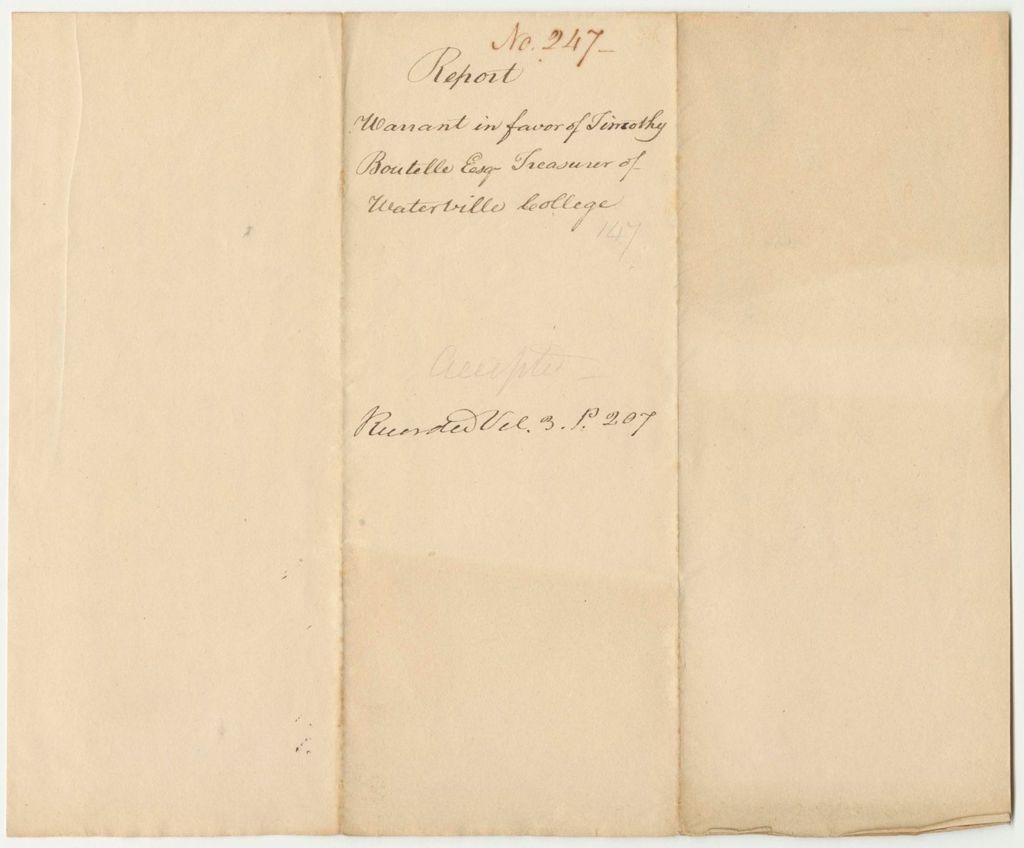 No. 247-
Report
Warrant in favor of Timothy
Boutelle Esqr Treasurer of
Waterville College
147
Accepted -
Recorded Vol. 3. P. 207